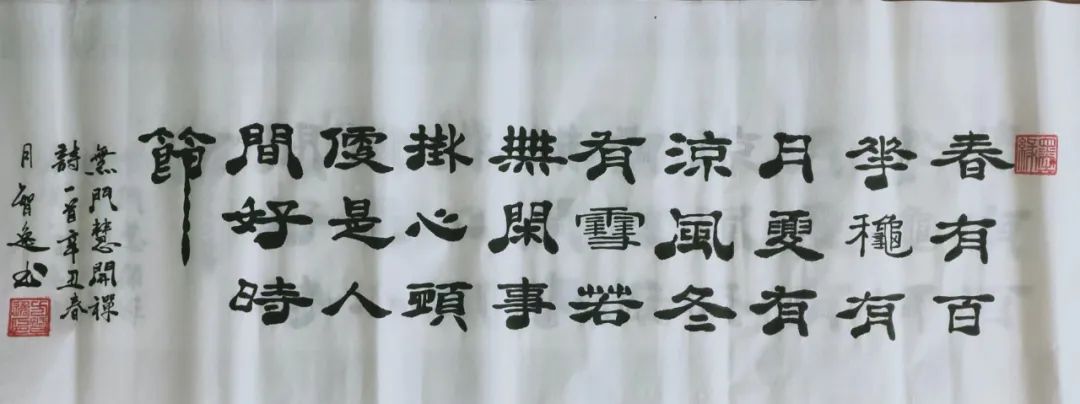 春有百
華穐有
月夏有
涼風冬
有雪若
無閑事
掛心頭
便是人
間好時
節
無門慧開禪
詩一首辛丑春
月智逸书